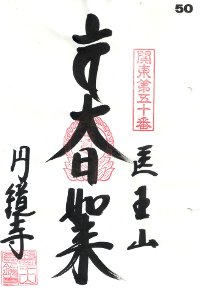 50
関東第五十番
医王山
大日如来
円鏡寺